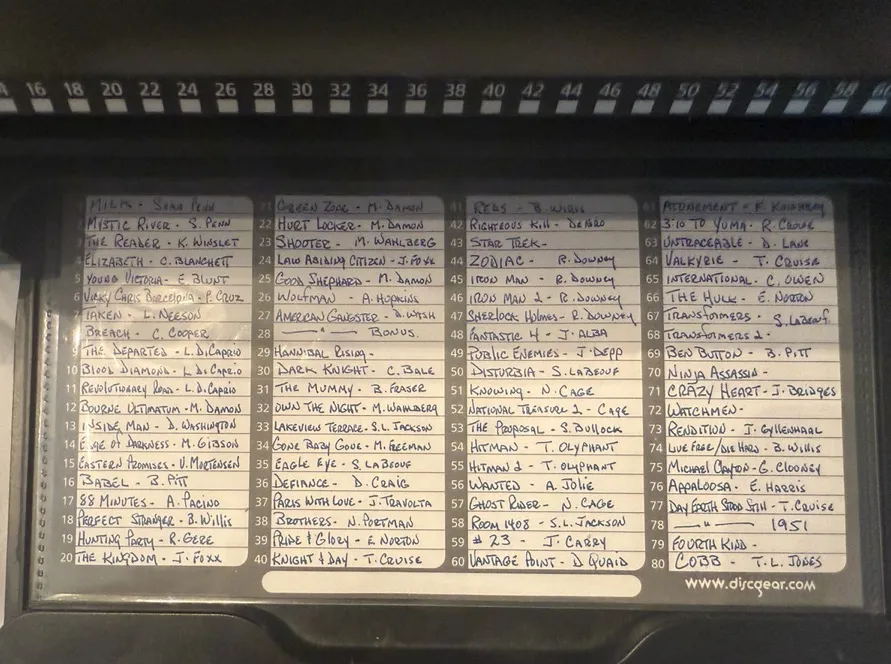 16 18 20 22 24 26 28 30 32 34 36 38 40 42 44 46 48 50 52 54 56 58 60
MILK - SEAN PENN
MYSTIC RIVER - S. PENN
3 THE READER - K. WINSLET
4 ELIZABETH - C. BLANCHETT
5 YOUNG VICTORIA - E. BLUNT
6 VICKY CHRIS BARCELONA - P. CRUZ
7 TAKEN - L. NEESON
BREACH - C. COOPER
9 THE DEPARTED - L. DICAPRIO
10 BLOOD DIAMOND - L. DICAPRIO
11 REVOLUTIONARY ROAD - L. DICAPRIO
12 BOURNE ULTIMATUM - M. DAMON
13 INSIDE MAN - D. WASHINGTON
14 EDGE OF DARKNESS - M. GIBSON
15 EASTERN PROMISES - V. MORTENSEN
16 BABEL - B. PITT
17 88 MINUTES - A. PACINO
18 PERFECT STRANGER - B. WILLIS
19 HUNTING PARTY - R. GERE
20 THE KINGDOM - J. FOXX
21 GREEN ZONE - M. DAMON
22 HURT LOCKER - M. DAMON
23 SHOOTER - M. WAHLBERG
24 LAW ABIDING CITIZEN - J. FOXX
25 GOOD SHEPHARD - M. DAMON
26 WOLFMAN - A. HOPKINS
27 AMERICAN GANGSTER - D. WASH
28 — " — BONUS.
29 HANNIBAL RISING -
30 DARK KNIGHT - C. BALE
31 THE MUMMY - B. FRASER
32 OWN THE NIGHT - M. WAHLBERG
33 LAKEVIEW TERRACE - S.L. JACKSON
34 GONE BABY GONE - M. FREEMAN
35 EAGLE EYE - S. LABEOUF
36 DEFIANCE - D. CRAIG
37 PARIS WITH LOVE - J. TRAVOLTA
38 BROTHERS - N. PORTMAN
39 PRIDE & GLORY - E. NORTON
40 KNIGHT & DAY - T. CRUISE
41 REDS - B. WILLIS
42 RIGHTEOUS KILL - DENIRO
43 STAR TREK -
44 ZODIAC - R. DOWNEY
45 IRON MAN - R. DOWNEY
46 IRON MAN 2 - R. DOWNEY
47 SHERLOCK HOLMES - R. DOWNEY
48 FANTASTIC 4 - J. ALBA
49 PUBLIC ENEMIES - J. DEPP
50 DISTURBIA - S. LABEOUF
51 KNOWING - N. CAGE
52 NATIONAL TREASURE 2 - CAGE
53 THE PROPOSAL - S. BULLOCK
54 HITMAN - T. OLYPHANT
55 HITMAN 2 - T. OLYPHANT
56 WANTED - A. JOLIE
57 GHOST RIDER - N. CAGE
58 ROOM 1408 - S.L. JACKSON
59 # 23 - J. CARRY
60 VANTAGE POINT - D. QUAID
61 ATONEMENT - K. KNIGHTLEY
62 3:10 TO YUMA - R. CROWE
63 UNTRACEABLE - D. LANE
64 VALKYRIE - T. CRUISE
65 INTERNATIONAL - C. OWEN
66 THE HULK - E. NORTON
67 TRANSFORMERS - S. LABEOUF
68 TRANSFORMERS 2 -
69 BEN BUTTON - B. PITT
70 NINJA ASSASSIN -
71 CRAZY HEART - J. BRIDGES
72 WATCHMEN -
73 RENDITION - J. GYLLENHAAL
74 LIVE FREE/DIE HARD - B. WILLIS
75 MICHAEL CLAYTON - G. CLOONEY
76 APPALOOSA - E. HARRIS
77 DAY EARTH STOOD STILL - T. CRUISE
78 — " — 1951
79 FOURTH KIND -
80 COBB - T. L. JONES
www.discgear.com